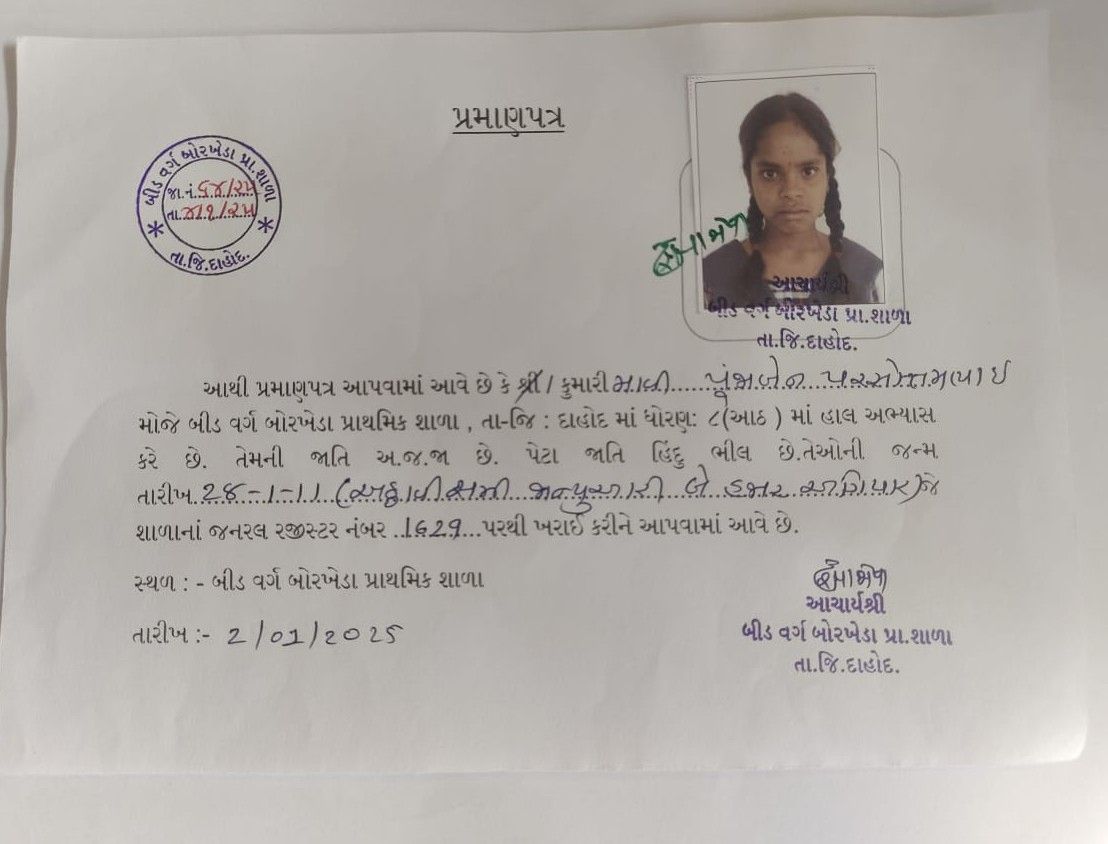 પ્રમાણપત્ર
બીડ વર્ગ બોરખેડા પ્રા.શાળા
જા.નં.૬૪/૨૫
તા.૪/૧/૨૫
તા.જિ.દાહોદ.
આચાર્યશ્રી
બીડ વર્ગ બોરખેડા પ્રા.શાળા
તા.જિ.દાહોદ.
આથી પ્રમાણપત્ર આપવામાં આવે છે કે શ્રી / કુમારી
મોજે બીડ વર્ગ બોરખેડા પ્રાથમિક શાળા , તા-જિ : દાહોદ માં ધોરણ: ૮(આઠ ) માં હાલ અભ્યાસ
કરે છે. તેમની જાતિ અ.જ.જા છે. પેટા જાતિ હિંદુ ભીલ છે.તેઓની જન્મ
તારીખ.28-1-11 (અઠ્ઠાવીસમી જાન્યુઆરી બે હજાર અગિયાર)જે
શાળાનાં જનરલ રજીસ્ટર નંબર ..1629...પરથી ખરાઈ કરીને આપવામાં આવે છે.
સ્થળ : - બીડ વર્ગ બોરખેડા પ્રાથમિક શાળા
તારીખ :- 2/01/2025
આચાર્યશ્રી
બીડ વર્ગ બોરખેડા પ્રા.શાળા
તા.જિ.દાહોદ.